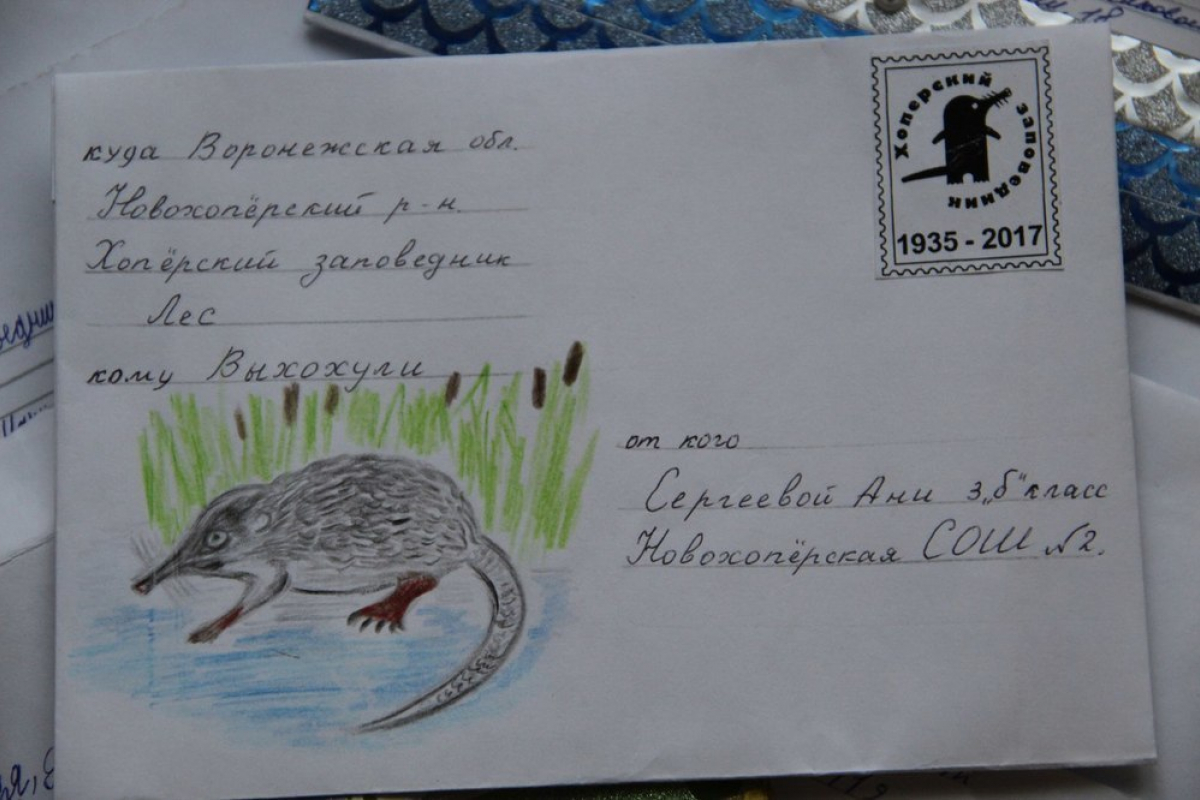 куда Воронежская обл.
Новохопёрский р-н.
Хопёрский заповедник
Лес
кому Выхохули
Хоперский заповедник
1935 - 2017
от кого
Сергеевой Ани 3„б“класс
Новохопёрская СОШ №2.